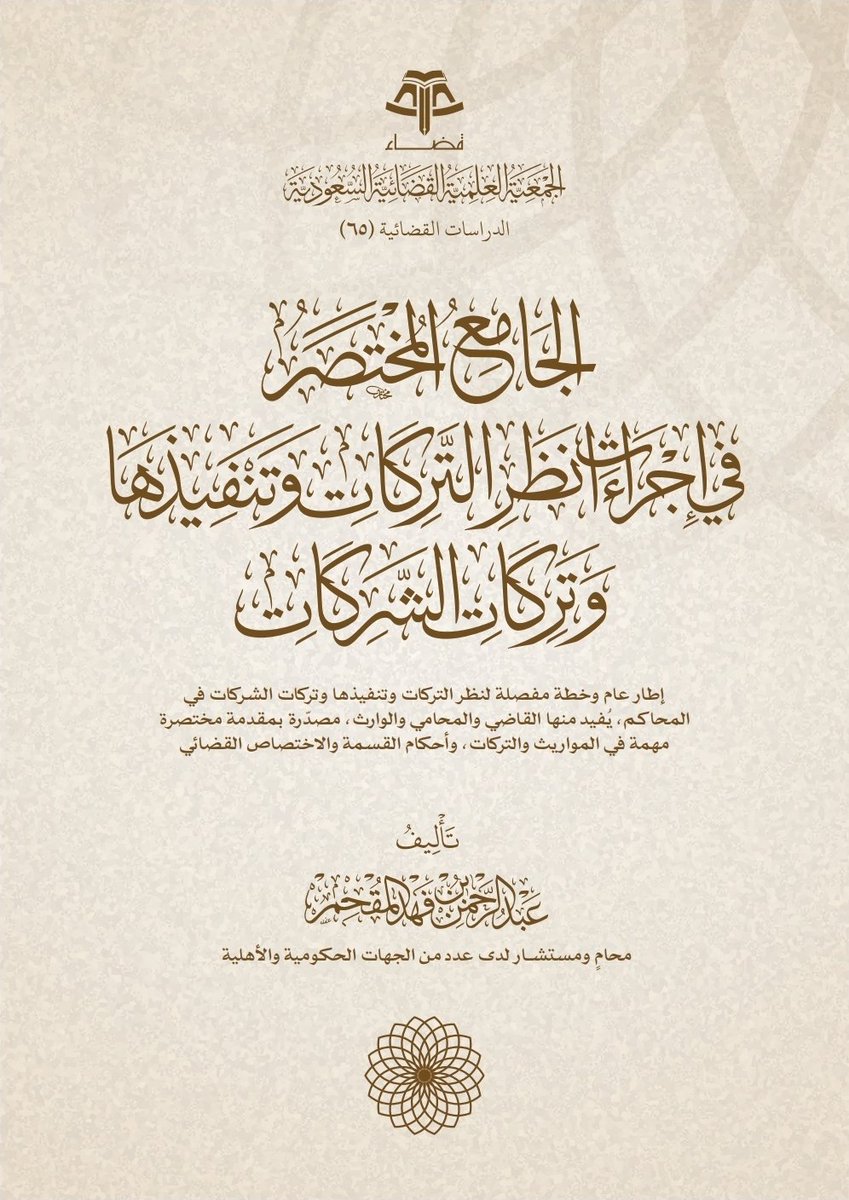 قضاء
الجَمْعِيَّةُ العِلْمِيَّةُ القَضَائِيَّةُ السُّعُودِيَّةُ
الدراسات القضائية (٦٥)
الجَامِعُ المُخْتَصَرُ
فِي إِجْرَاءَاتِ نَظَرِ التَّرِكَاتِ وَتَنْفِيذِهَا
وَتَرِكَاتِ الشَّرِكَاتِ
إطار عام وخطة مفصلة لنظر التركات وتنفيذها وتركات الشركات في
المحاكم، يُفيد منها القاضي والمحامي والوارث، مصدّرة بمقدمة مختصرة
مهمة في المواريث والتركات، وأحكام القسمة والاختصاص القضائي
تَأْلِيفُ
عَبْدُ الرَّحْمٰنِ بْنُ فَهْدِ المُقْحِمِ
محامٍ ومستشار لدى عدد من الجهات الحكومية والأهلية